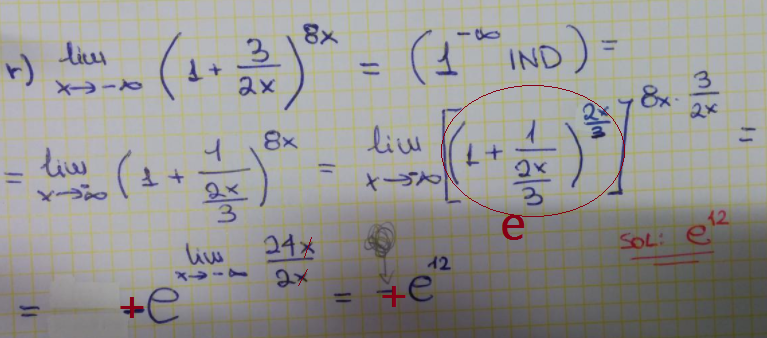 r) lim x→-∞ (1 + 3/2x)^8x = (1^-∞ IND) =
= lim x→-∞ (1 + 1/(2x/3))^8x = lim x→-∞ [(1 + 1/(2x/3))^2x/3]^8x · 3/2x =
e
SOL: e^12
= +e^lim x→-∞ 24x/2x = +e^12